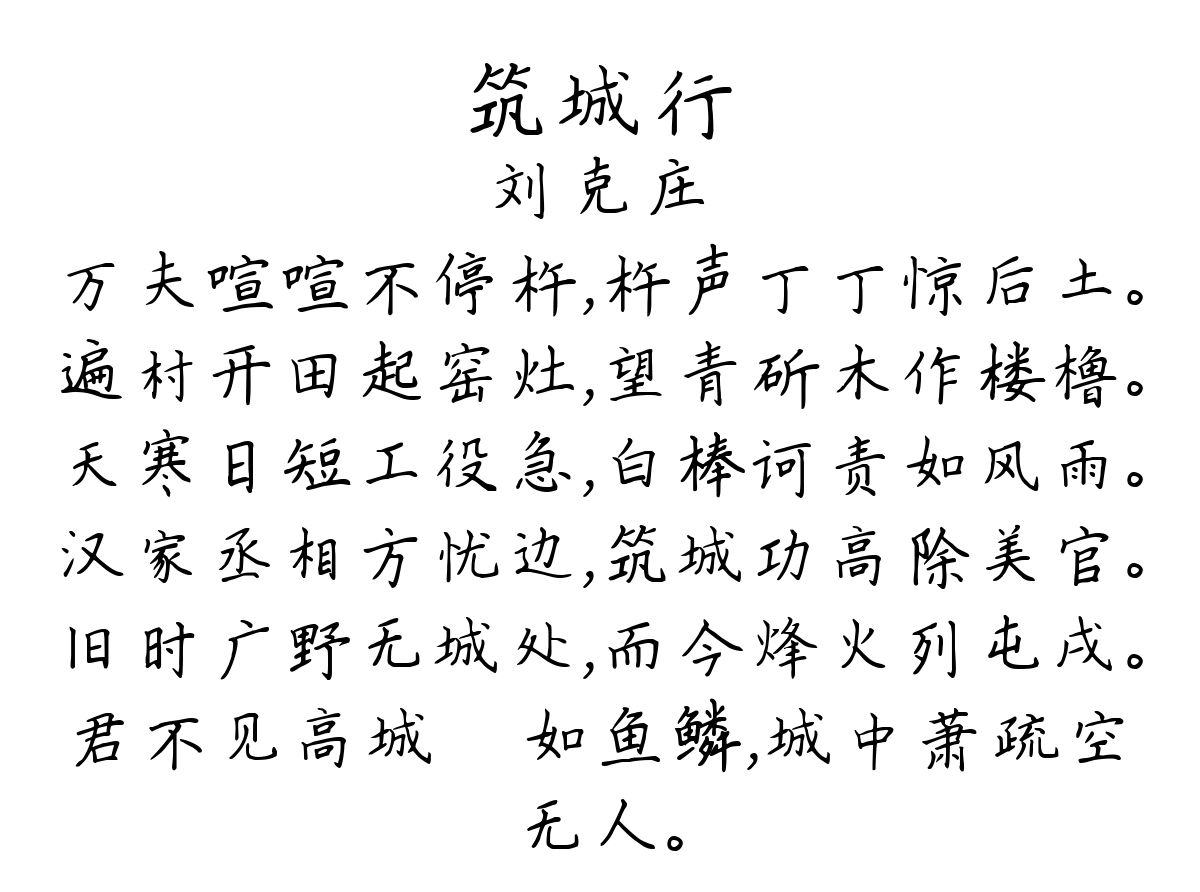 筑城行
刘克庄
万夫喧喧不停杵,杵声丁丁惊后土。
遍村开田起窑灶,望青斫木作楼橹。
天寒日短工役急,白棒诃责如风雨。
汉家丞相方忧边,筑城功高除美官。
旧时广野无城处,而今烽火列屯戍。
君不见高城 如鱼鳞,城中萧疏空
无人。